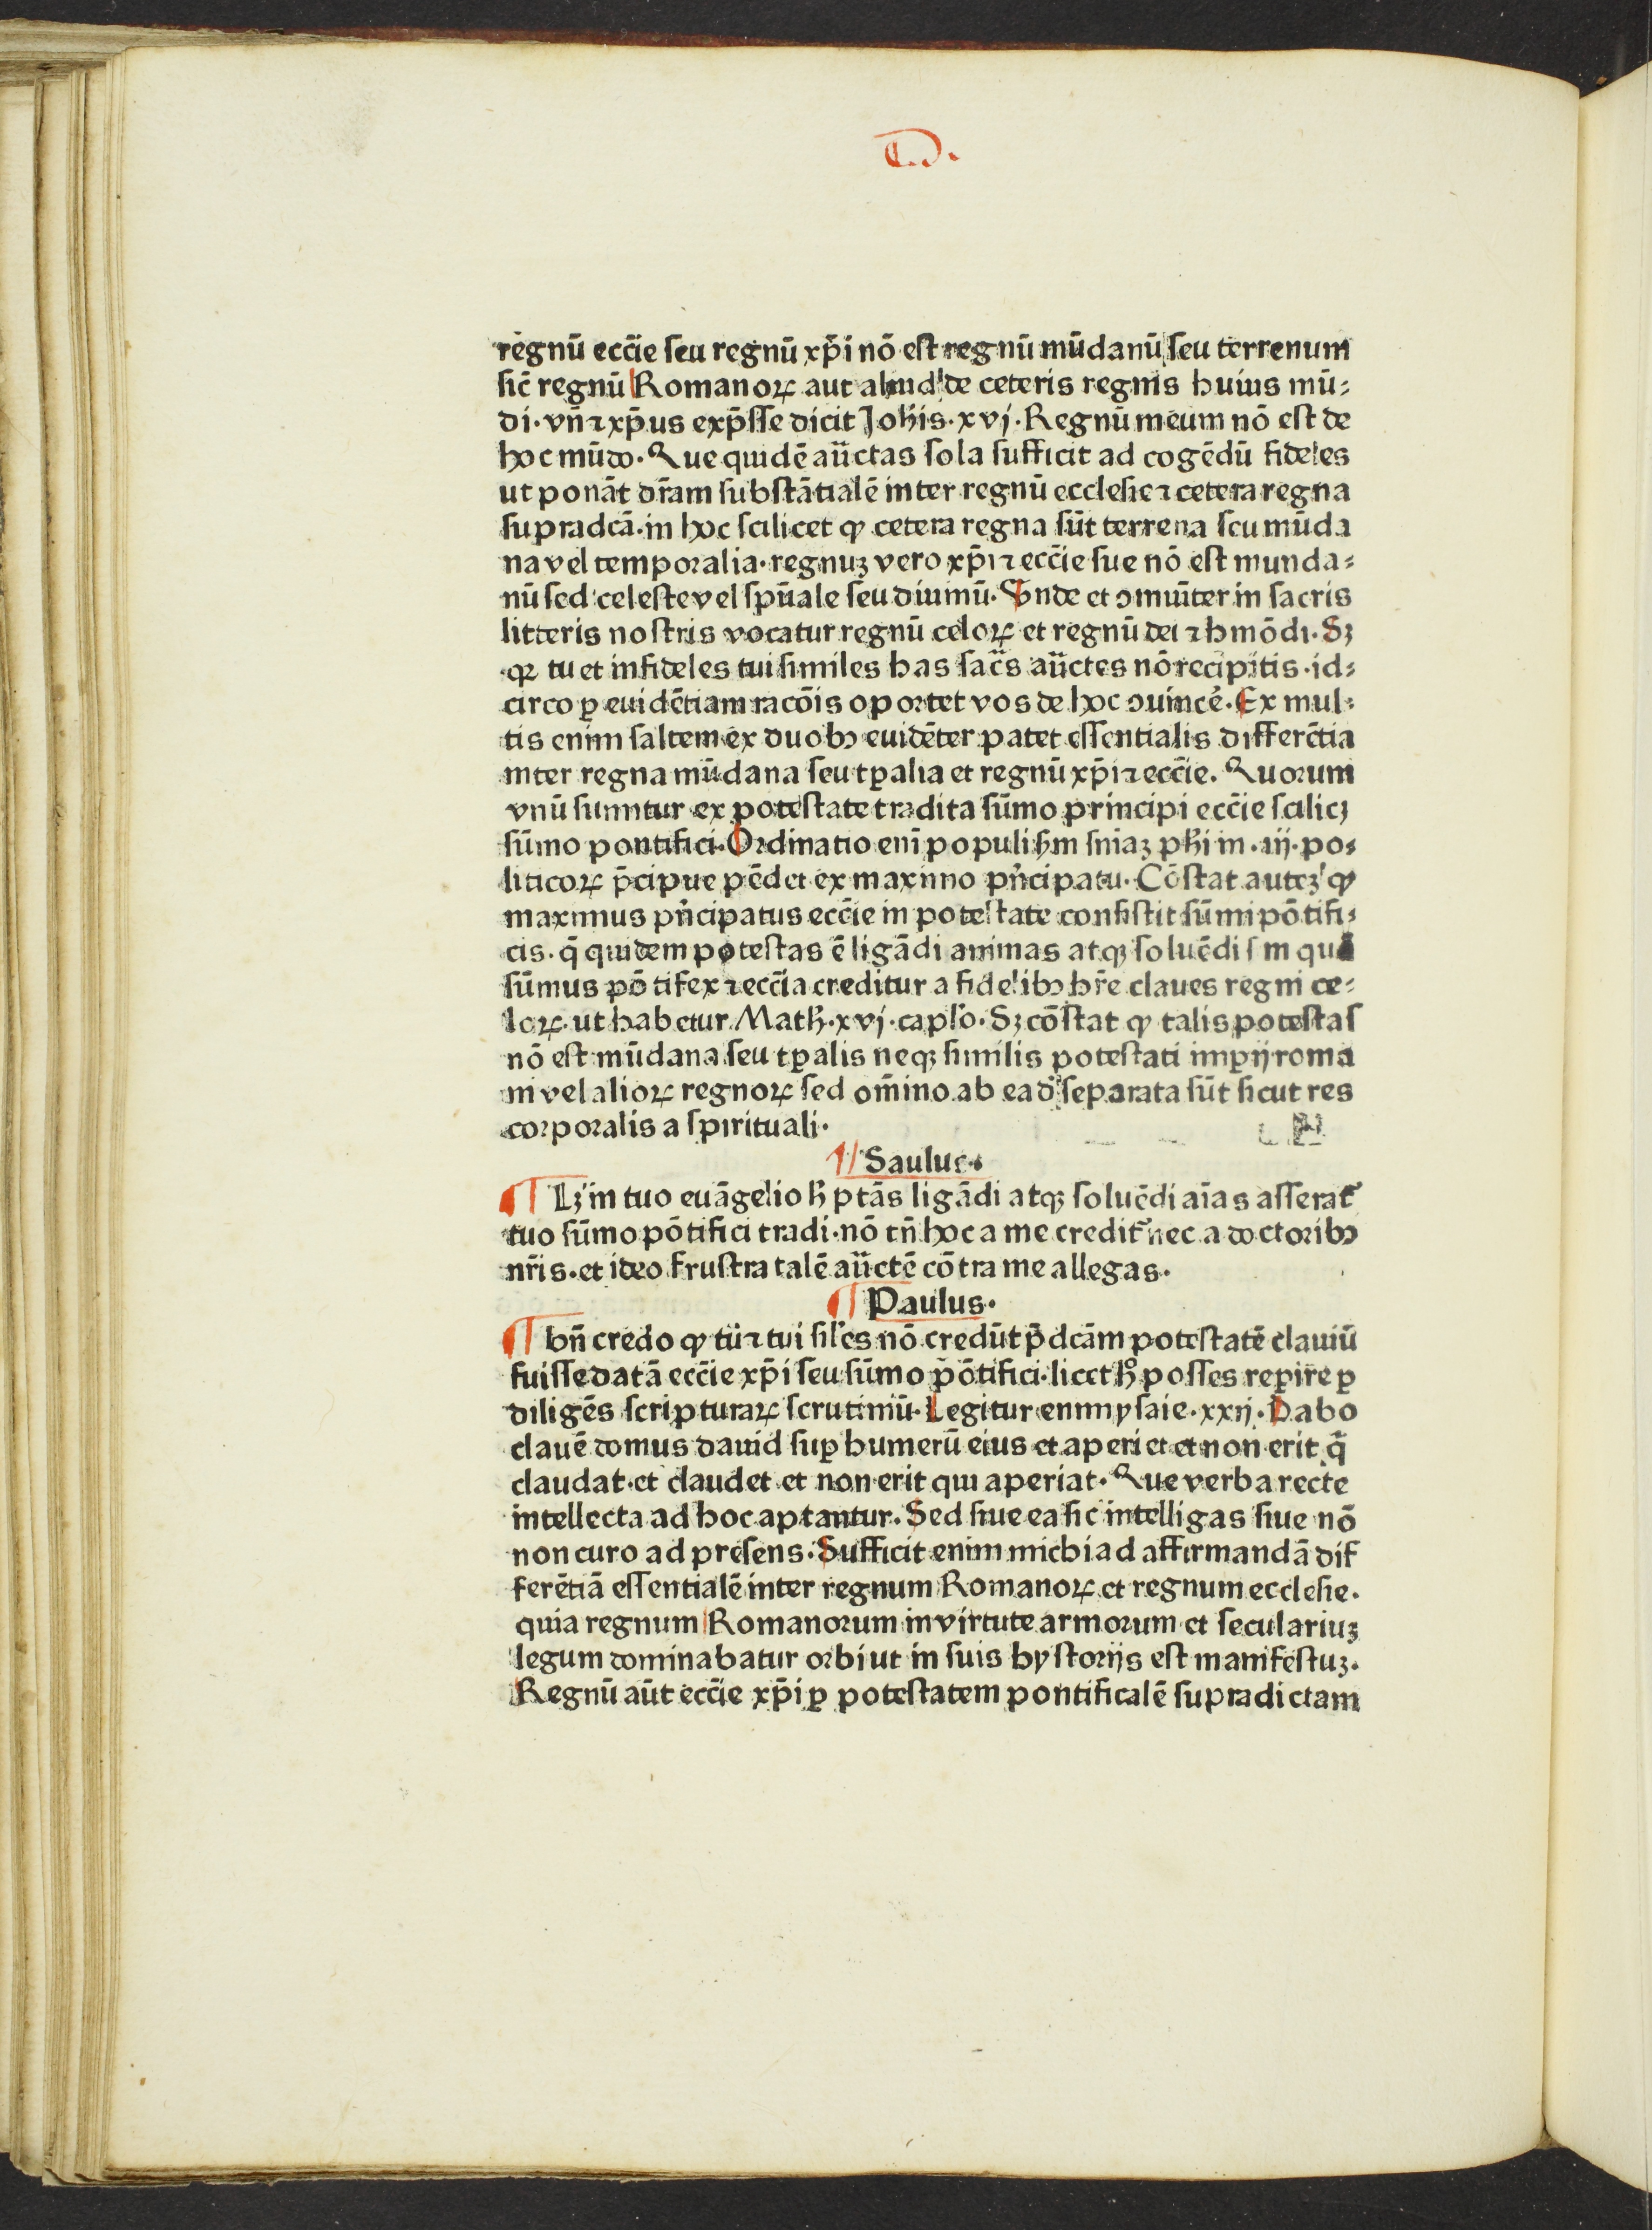 regnū ecc̄ie seu regnū xp̄i nō est regnū mūdanū seu terrenum
sic̄ regnū Romanoꝝ aut aliud de ceteris regnis huius mū⸗
di· vn̄ ⁊ xp̄us exp̄sse dicit Joh̄is· xvj· Regnū meum nō est de
hoc mūdo· Que quidē au̅ctas sola sufficit ad cogēdū fideles
ut ponāt dr̄am substātialē inter regnū ecclesie ⁊ cetera regna
supradcā· in hoc scilicet ꝙ cetera regna sūt terrena seu mūda
na vel temporalia· regnuꝫ vero xp̄i ⁊ ecc̄ie sue nō est munda⸗
nū sed celeste vel spūale seu diuinū· Unde et ꝯmuīter in sacris
litteris nostris vocatur regnū celoꝝ et regnū dei ⁊ hmōdi· Sꝫ
qꝛ tu et infideles tui similes has sac̄s au̅ctes nō recipitis· id⸗
circo ꝑ euidētiam racōis oportet vos de hoc ꝯuinc̄e· Ex mul⸗
tis enim saltem ex duobꝫ euidēter patet essentialis differētia
inter regna mūdana seu tꝑalia et regnū xp̄i ⁊ ecc̄ie. Quorum
vnū sumitur ex potestate tradita sūmo principi ecc̄ie scilicꝫ
sūmo pontifici· Ordinatio eni̅ populi ẜm sn̄iaꝫ ph̄i in· iij· po⸗
liticoꝝ p̄cipue pēdet ex maximo pn̄cipatu· Cōstat auteꝫ ꝙ
maximus pn̄cipatus ecc̄ie in potestate consistit sūmi pōtifi⸗
cis· q̄ quidem potestas ē ligādi animas atqꝫ soluēdi ẜm quā
sūmus pōtifex ⁊ ecc̄ia creditur a fidelibꝫ hr̄e claues regni ce⸗
loꝝ· ut habetur Math̄· xvj· caplo· Sꝫ cōstat ꝙ talis potestas
nō est mūdana seu tꝑalis neqꝫ similis potestati imꝑij roma
ni vel alioꝝ regnoꝝ sed om̄ino ab ead̄ separata sūt sicut res
corporalis a spirituali·
¶ Saulus·
¶ Lꝫ in tuo euāgelio h̄ ptās ligādi atqꝫ soluēdi aīas asserat̄
tuo sūmo pōtifici tradi· nō tn̄ hoc a me credit̄ nec a doctoribꝫ
nr̄is· et ideo frustra talē au̅ctē cōtra me allegas·
¶ Paulus·
¶ bn̄ credo ꝙ tu ⁊ tui siles nō credūt p̄dcām potestatē clauiū
fuisse datā ecc̄ie xp̄i seu sūmo pōtifici· licet h̊ posses reꝑire ꝑ
diligēs scripturaꝝ scrutiniū· Legitur enim ysaie· xxij· Dabo
clauē domus dauid suꝑ humerū eius et aperiet et non erit q̄
claudat· et claudet et non erit qui aperiat· Que verba recte
intellecta ad hoc aptantur· Sed siue ea sic intelligas siue nō
non curo ad presens· Sufficit enim michi ad affirmandā dif
ferētiā essentialē inter regnum Romanoꝝ et regnum ecclesie·
quia regnum Romanorum in virtute armorum et seculariuꝫ
legum dominabatur orbi ut in suis hystorijs est manifestuꝫ·
Regnū aūt ecc̄ie xp̄i ꝑ potestatem pontificalē supradictam